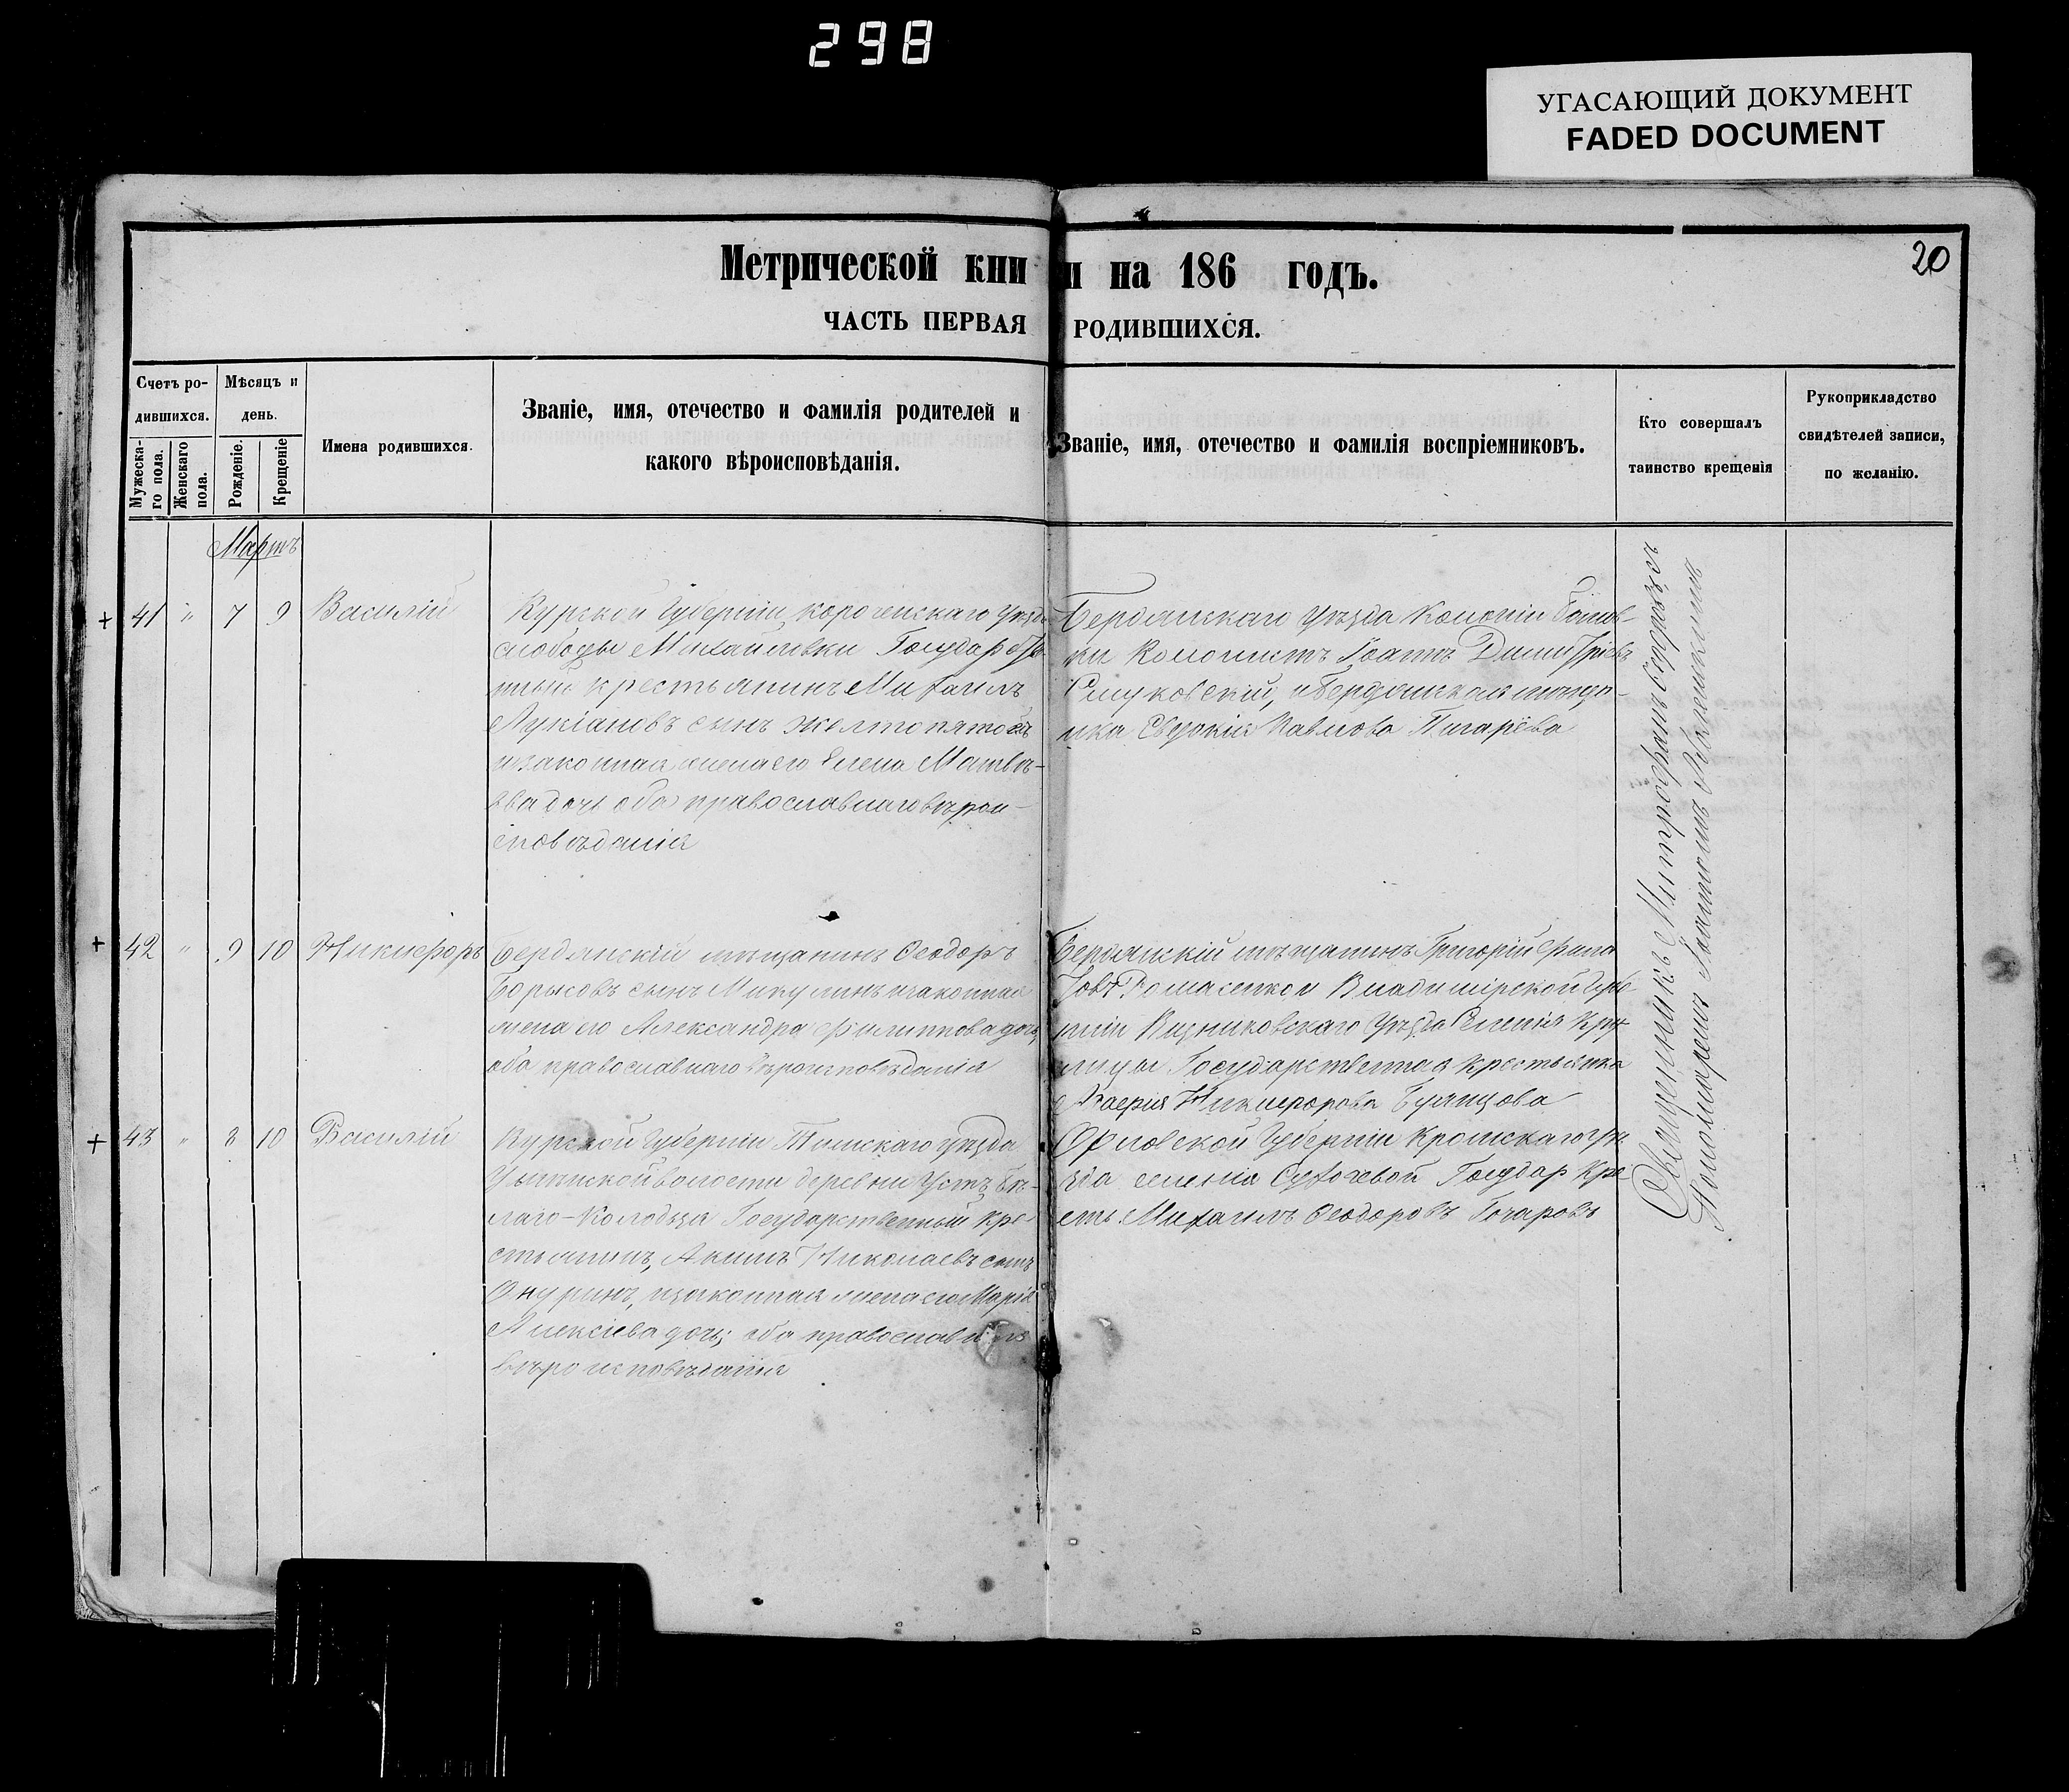 298
УГАСАЮЩИЙ ДОКУМЕНТ
FADED DOCUMENT
20
Метрической кни и на 186 годъ.
ЧАСТЬ ПЕРВАЯ РОДИВШИХСЯ.
Счетъ ро-
дившихся.
Мужеска-
го пола.
Женскаго
пола.
Мѣсяцъ и
день.
Рожденіе.
Крещеніе
Имена родившихся.
Званіе, имя, отечество и фамилія родителей и
какого вѣроисповѣданія.
Званіе, имя, отечество и фамилія воспріемниковъ.
Кто совершалъ
таинство крещенія
Рукоприкладство
свидѣтелей записи,
по желанію.
Мартъ
+ 41 " 7 9 Василій
Курской Губерніи, короченскаго уѣзда
слободы Михайловки Государстве-
нный крестьянинъ Михаилъ
Лукіановъ сынъ
и законная жена его Елена Матвѣ-
ева дочь оба православнаго вѣрои-
сповѣданія
Бердянскаго уѣзда Колоніи
ки Колонистъ Іоаннъ Димитріевъ
и Бердянская мѣща-
нка Евдокія Павлова Пигарёва
+ 42 " 9 10 Никифоръ
Бердянскій мѣщанинъ Ѳеодоръ
Борисовъ сынъ Микулинъ и законная
жена его Александра Филиппова дочь,
оба православнаго вѣроисповѣданія
Бердянскій мѣщанинъ Григорій
Владимірской Губе-
рніи Вязниковскаго Уѣзда Селенія
Государственная крестьянка
Никифорова
+ 43 " 8 10 Василій
Курской Губерніи Тимскаго уѣзда
волости деревни Устъ Бѣ-
лаго-Колодезя Государственный кре-
стьянинъ, Акимъ Николаевъ сынъ
и законная жена его Марія
Алексіева дочь; оба православнаго
вѣроисповѣданія
Орловской Губерніи Кромскаго уѣ-
зда селенія Государ кре-
сть. Михаилъ Ѳеодоровъ Гочаровъ
Священникъ Митрофанъ
Пономаремъ Іоанномъ